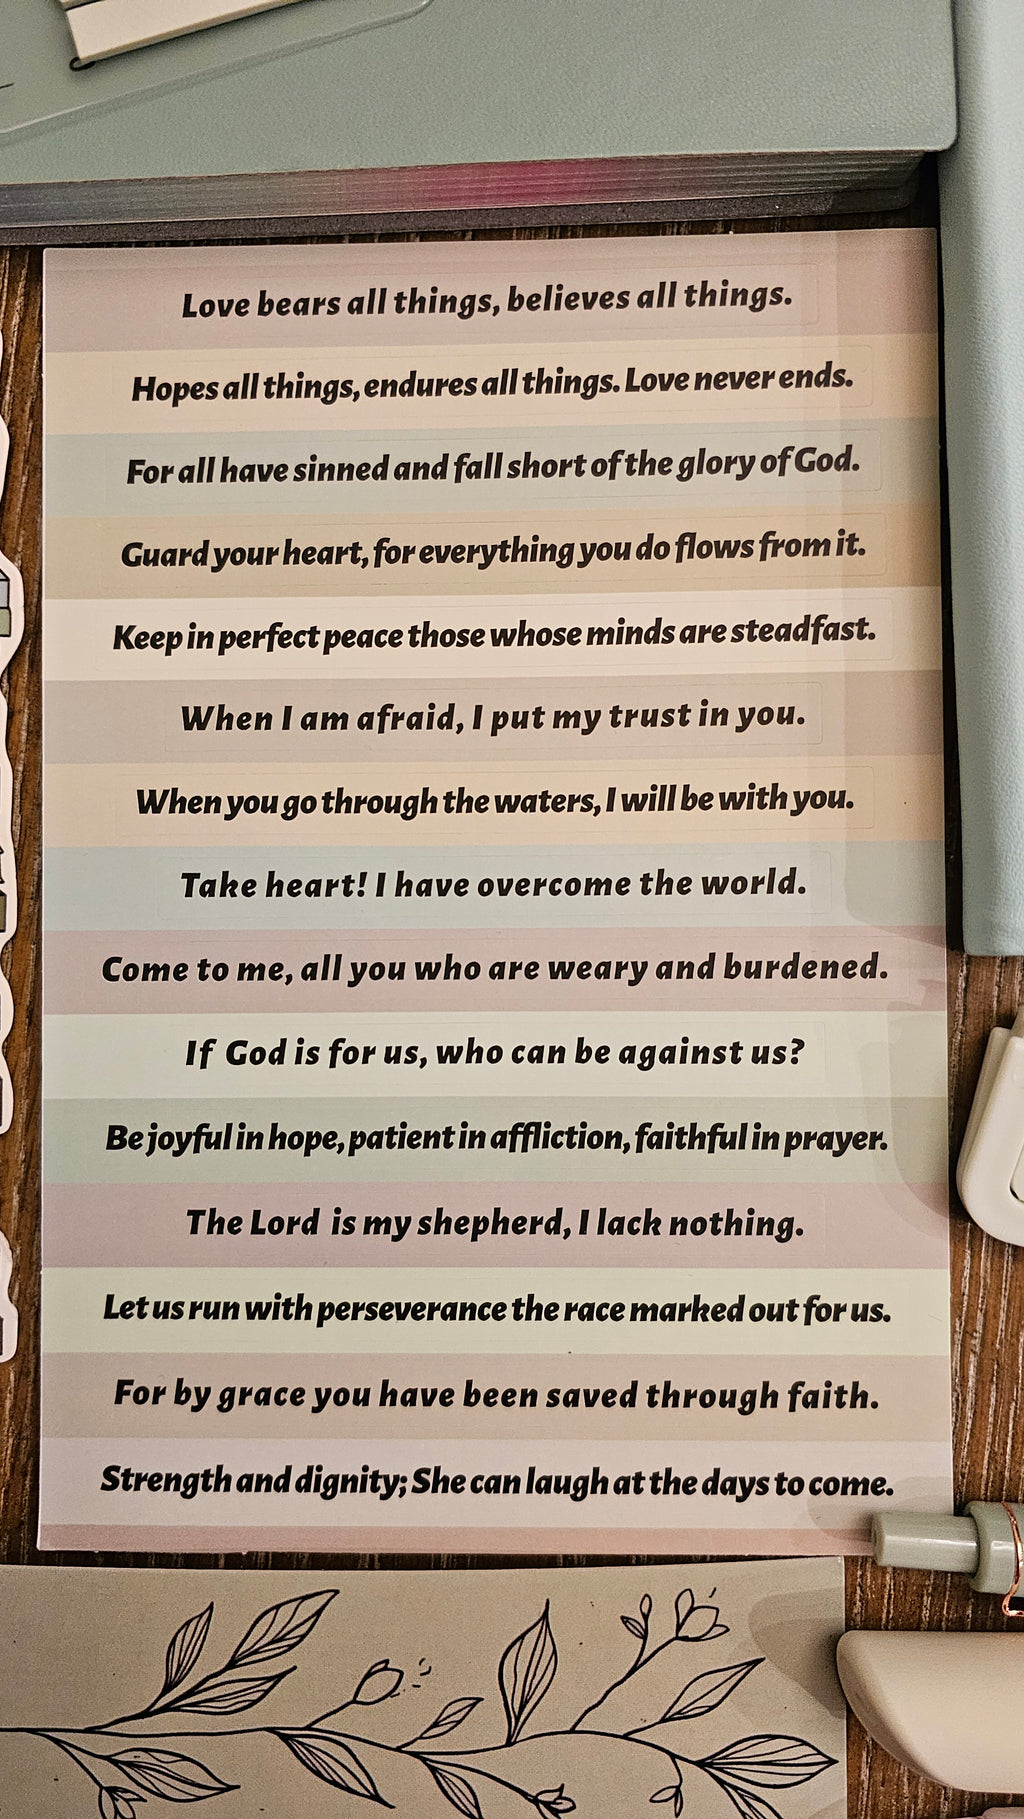 Love bears all things, believes all things.
Hopes all things, endures all things. Love never ends.
For all have sinned and fall short of the glory of God.
Guard your heart, for everything you do flows from it.
Keep in perfect peace those whose minds are steadfast.
When I am afraid, I put my trust in you.
When you go through the waters, I will be with you.
Take heart! I have overcome the world.
Come to me, all you who are weary and burdened.
If God is for us, who can be against us?
Be joyful in hope, patient in affliction, faithful in prayer.
The Lord is my shepherd, I lack nothing.
Let us run with perseverance the race marked out for us.
For by grace you have been saved through faith.
Strength and dignity; She can laugh at the days to come.